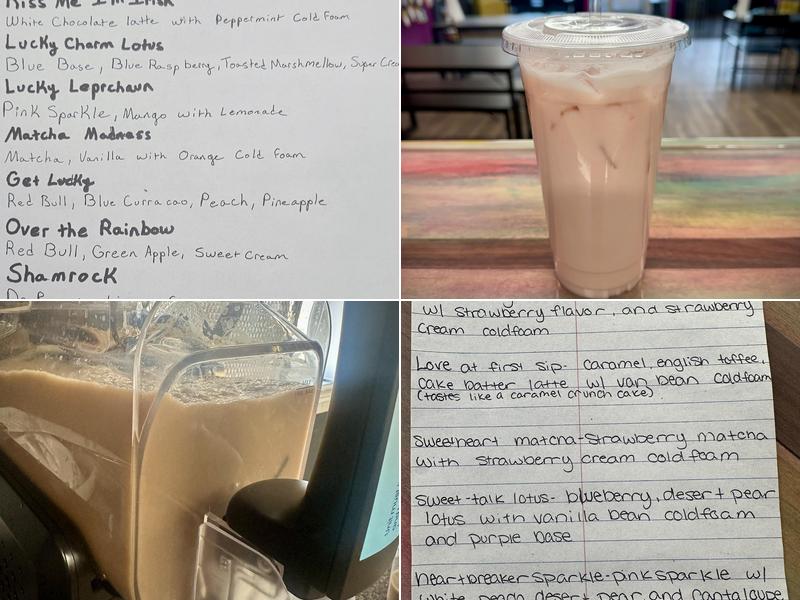 Kiss Me I'm Irish
White Chocolate latte with Peppermint Cold Foam
Lucky Charm Lotus
Blue Base, Blue Raspberry, Toasted Marshmallow, Super Crea
Lucky Leprchaun
Pink Sparkle, Mango with Lemonade
Matcha Madness
Matcha, Vanilla with Orange Cold foam
Get Lucky
Red Bull, Blue Curracao, Peach, Pineapple
Over the Rainbow
Red Bull, Green Apple, Sweet Cream
Shamrock
w/ strawberry flavor, and strawberry
cream coldfoam
Love at first sip- caramel, english toffee,
cake batter latte w/ van bean coldfoam
(tastes like a caramel crunch cake)
sweetheart matcha-strawberry matcha
with strawberry cream cold foam
sweet-talk lotus- blueberry, desert pear
lotus with vanilla bean coldfoam
and purple base
heartbreaker sparkle-pink sparkle w/
white peach desert pear and cantaloupe